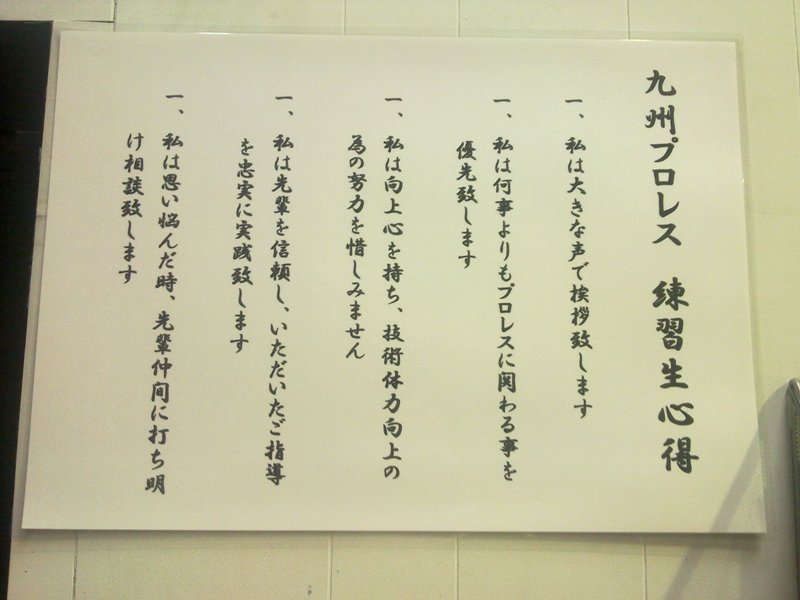 九州プロレス 練習生心得
一、私は大きな声で挨拶致します
一、私は何事よりもプロレスに関わる事を
優先致します
一、私は向上心を持ち、技術体力向上の
為の努力を惜しみません
一、私は先輩を信頼し、いただいたご指導
を忠実に実践致します
一、私は思い悩んだ時、先輩仲間に打ち明
け相談致します